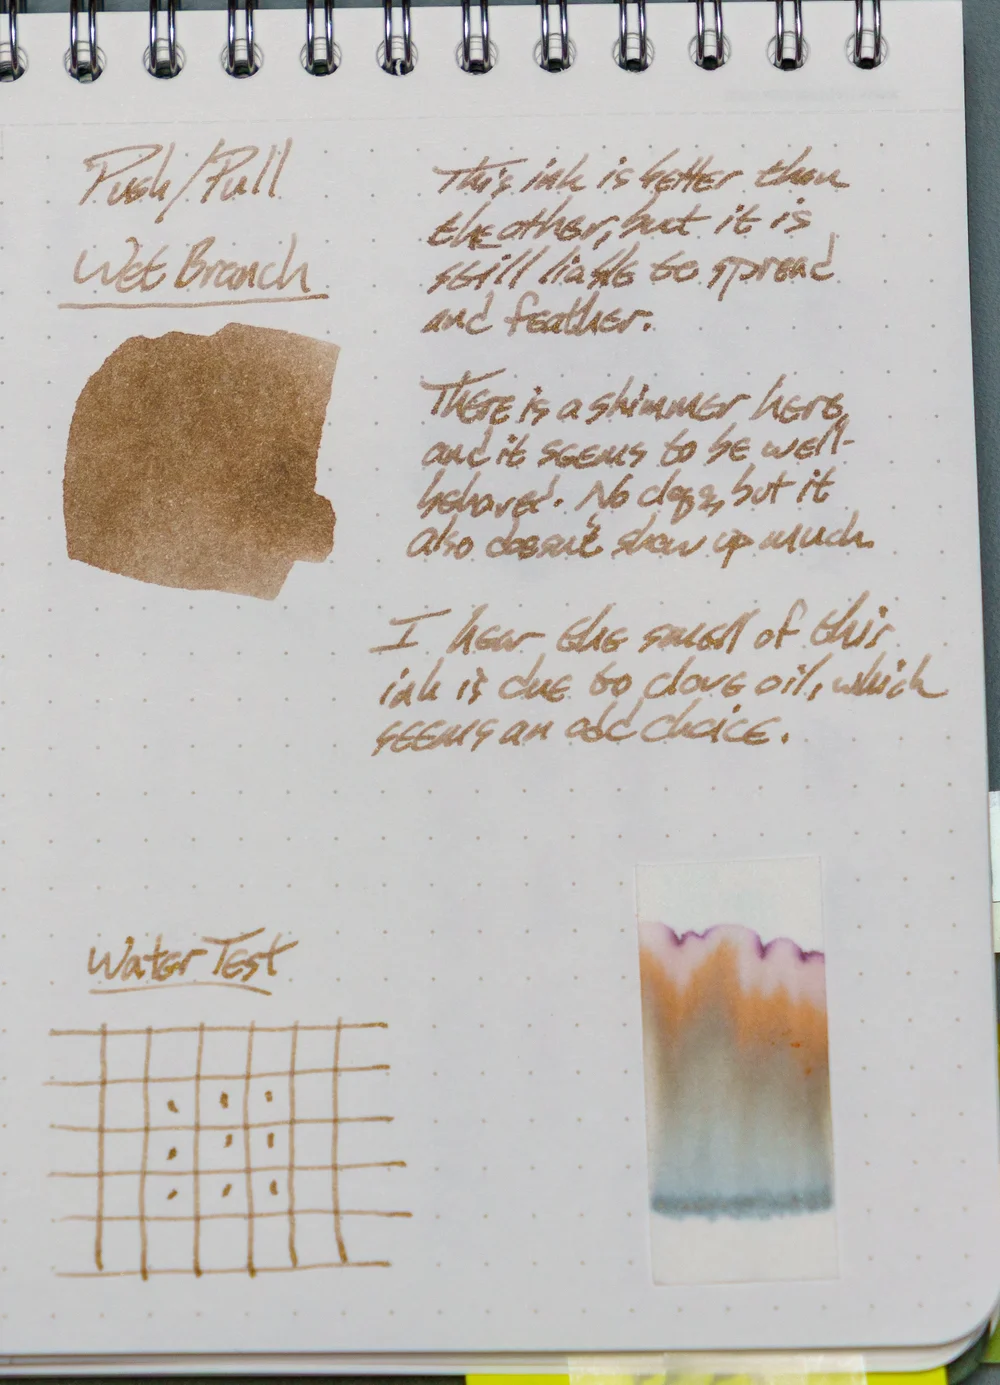 Push/Pull
Wet Branch
This ink is better than
the other, but it is
still liable to spread
and feather.
There is a shimmer here,
and it seems to be well-
behaved. No clogs, but it
also doesn't show up much.
I hear the smell of this
ink is due to clove oil, which
seems an odd choice.
Water Test